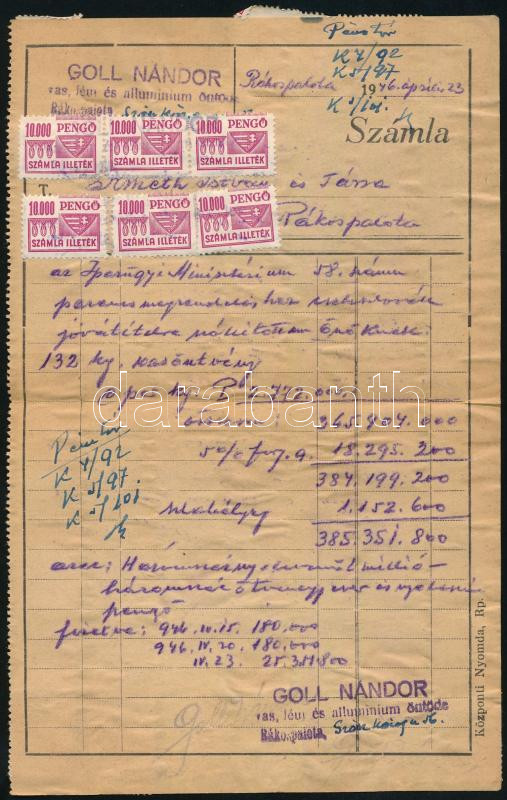 Pénztár
K 4/92
K 5/97
K 5/101.
GOLL NÁNDOR
vas, fém és alluminium öntöde
Rákospalota,
Rákospalota 1946. április 23
Számla
10.000 PENGŐ 10.000 PENGŐ 10.000 PENGŐ
SZÁMLA ILLETÉK SZÁMLA ILLETÉK SZÁMLA ILLETÉK
T. István és Társa
10.000 PENGŐ 10.000 PENGŐ 10.000 PENGŐ
SZÁMLA ILLETÉK SZÁMLA ILLETÉK SZÁMLA ILLETÉK
Rákospalota
az Iparügyi Minisztérium 58. számu
parancsmegrendeléshez
jóvátételre Önöknek:
132 kg. vasöntvény
kg. P
365.904.000
5% 18.295.200
384.199.200
1.152.600
385.351.800
Pénztár
K 4/92
K 5/97
K 5/101
azaz: Háromszáznyolcvanöt millió-
háromszázötvenegyezer és nyolcszáz
pengő
fizetve: 946.IV.15. 180.000
946.IV.20. 180.000
IV.23. 25.351.800
GOLL NÁNDOR
vas, fém és alluminium öntöde
Rákospalota,
Központi Nyomda, Rp.
darabanth